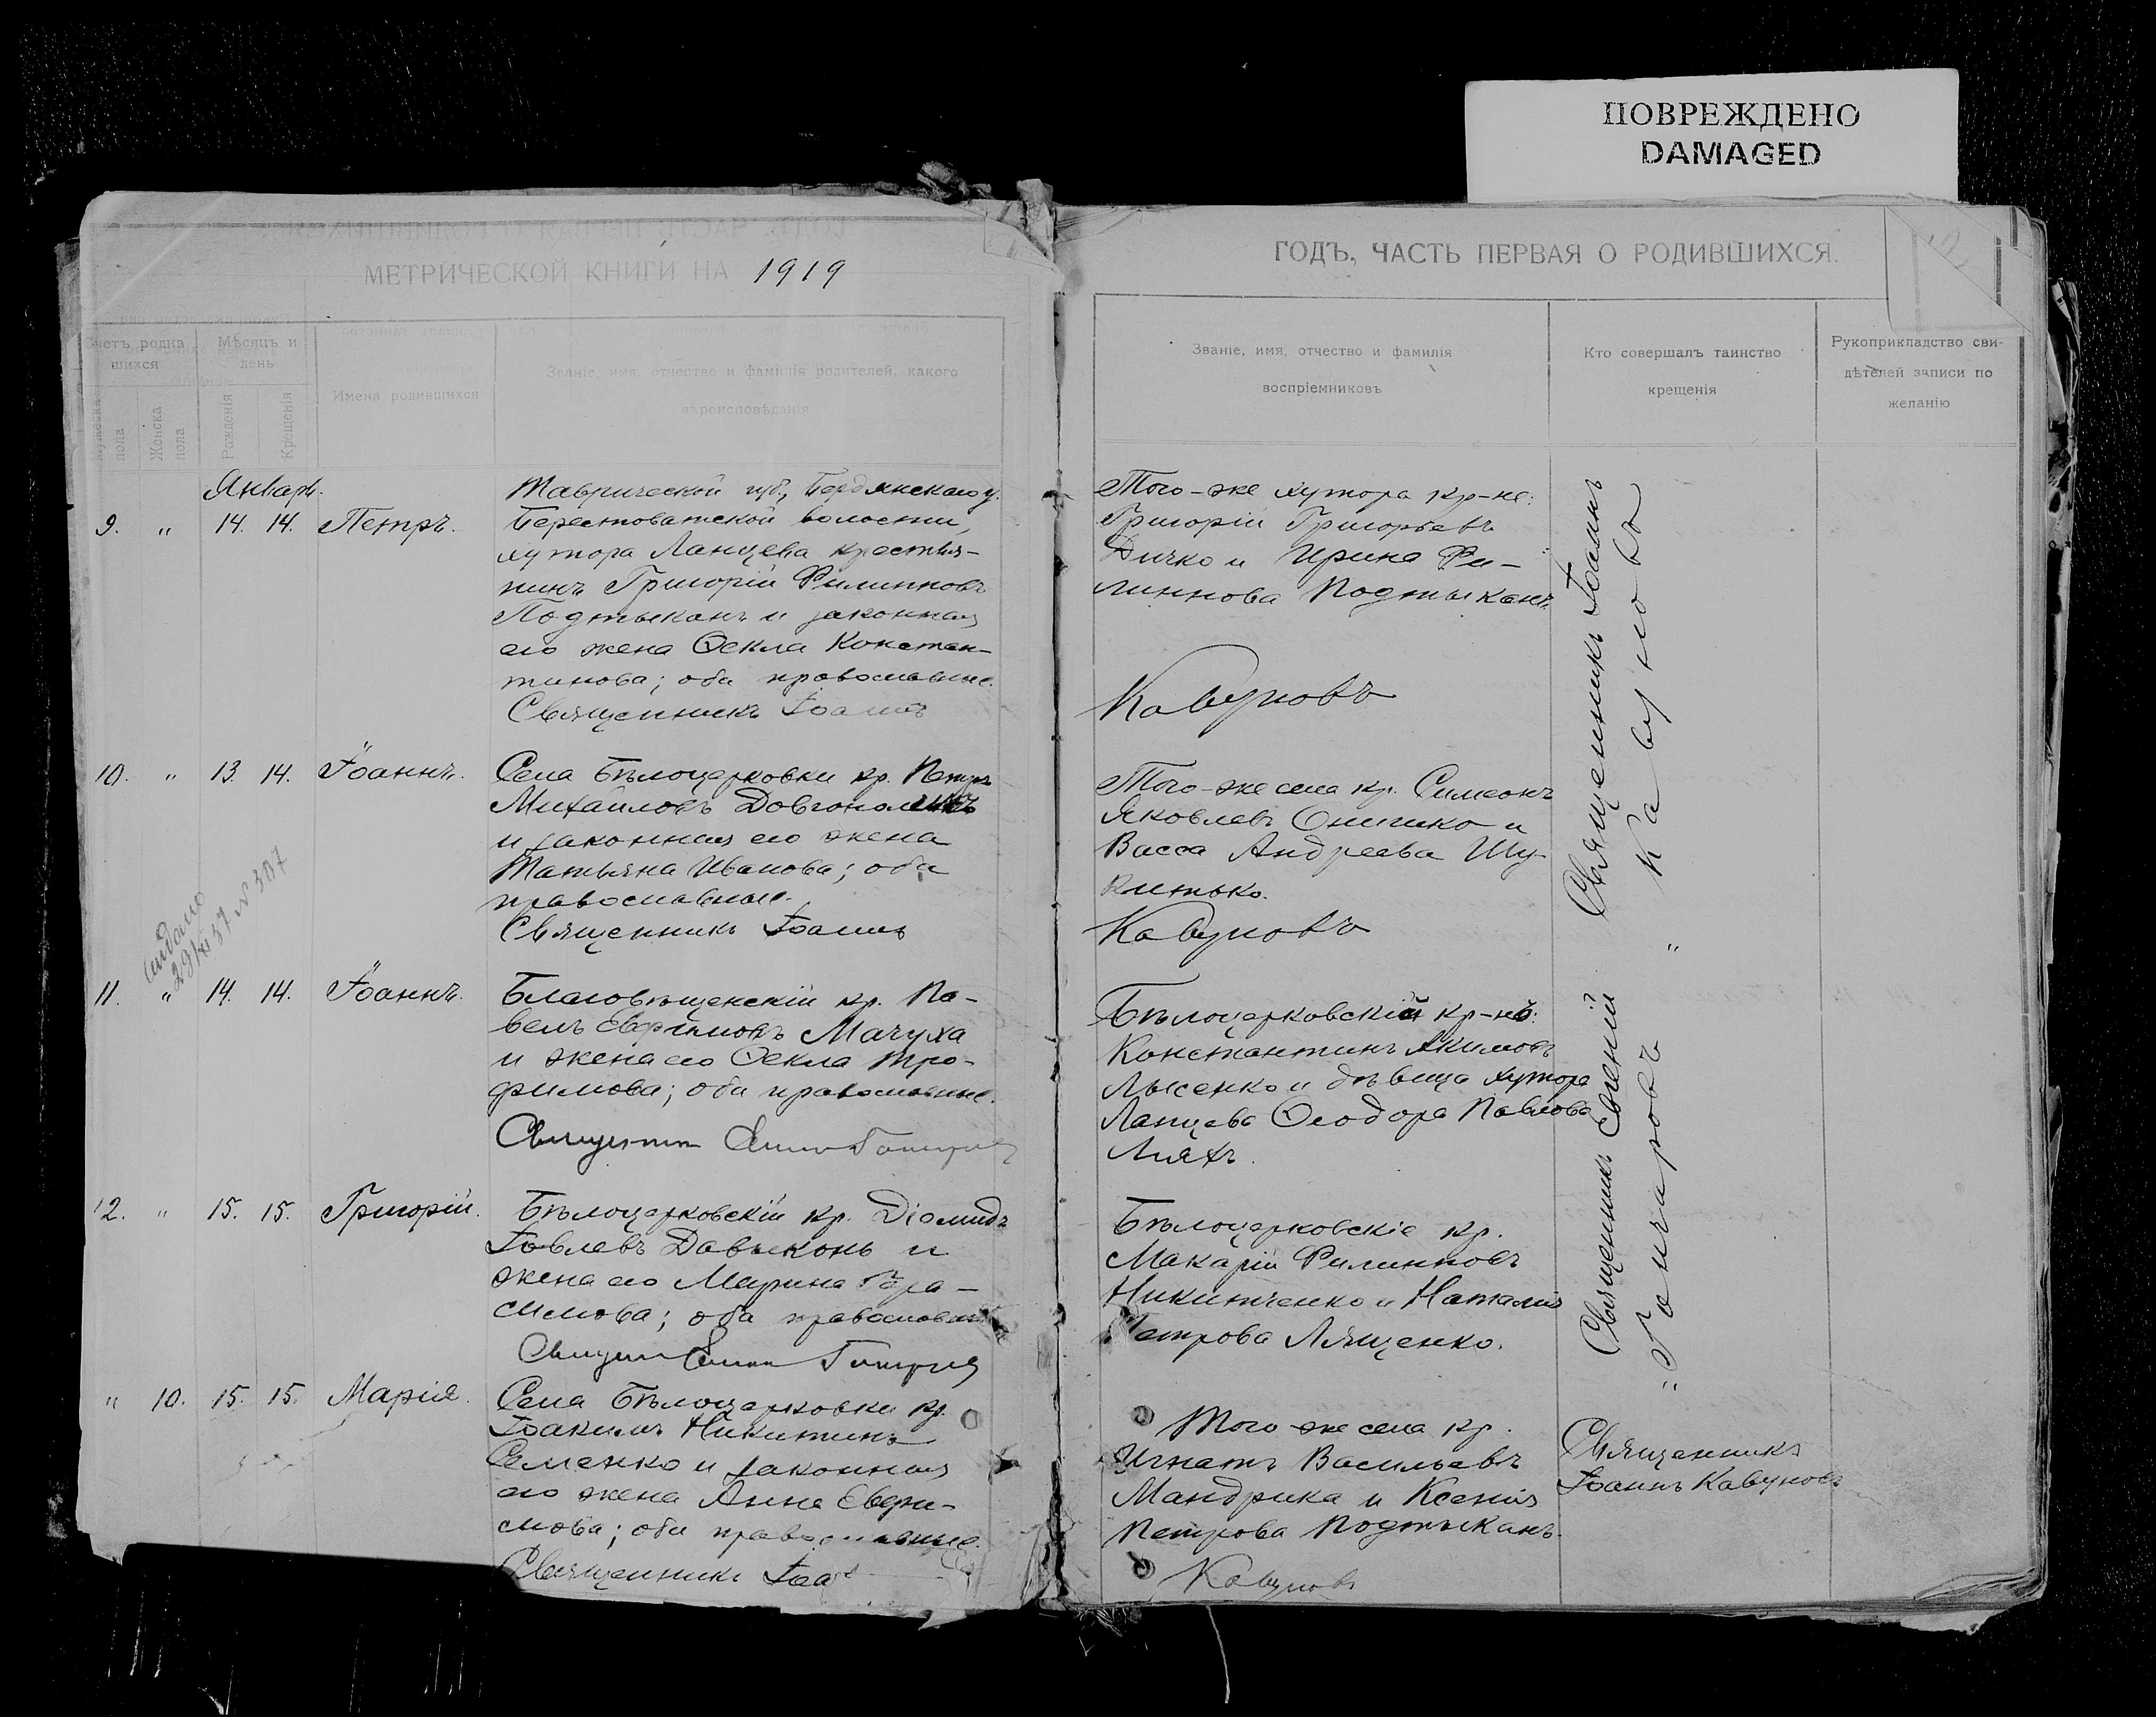 ПОВРЕЖДЕНО
DAMAGED
МЕТРИЧЕСКОЙ КНИГИ НА 1919
Счетъ родив
шихся
Мѣсяцъ и
день
Имена родившихся
Званіе, имя, отчество и фамилія родителей, какого
вѣроисповѣданія
Мужеска
пола
Женска
пола
Рожденія
Крещенія
Январь.
9. " 14. 14. Петръ.
Таврической губ., Бердянскаго у.
Берестоватской волости,
хутора Ланцева крестья-
нинъ Григорій Филипповъ
Подтыканъ и законная
его жена Ѳекла Констан-
тинова; оба православные.
Священникъ Іоаннъ
10. " 13. 14. Іоаннъ.
Села Бѣлоцерковки кр. Петръ
Михайловъ
и законная его жена
Татьяна Иванова; оба
православные.
Священникъ Іоаннъ
видано
29/XI 37 N 387
11. " 14. 14. Іоаннъ.
Благовѣщенскій кр. Па-
велъ Евфимовъ Мачуха
и жена его Ѳекла Тро-
фимова; оба православные.
Священникъ
12. " 15. 15. Григорій.
Бѣлоцерковскій кр. Діомидъ
Іовлевъ Давыконь и
жена его Марина Гера-
симова; оба православные
" 10. 15. 15. Марія.
Села Бѣлоцерковки кр.
Іоакимъ Никитинъ
Семенко и законная
его жена Анна Евфи-
мова; оба православные.
Священникъ Іоа
ГОДЪ, ЧАСТЬ ПЕРВАЯ О РОДИВШИХСЯ.
Званіе, имя, отчество и фамилія
воспріемниковъ
Кто совершалъ таинство
крещенія
Рукоприкладство сви-
дѣтелей записи по
желанію
Того-же хутора кр-не:
Григорій Григорьевъ
Дичко и Ирина Фи-
липпова Подтыканъ.
Кавуновъ
Того-же села кр. Симеонъ
Яковлевъ Онишко и
Васса Андреева Шу-
литько.
Кавуновъ
Священникъ Іоаннъ
" Кавуновъ
Бѣлоцерковскій кр-нъ:
Константинъ Якимовъ
Лысенко и дѣвица хутора
Ланцева Ѳеодора Павлова
Ляхъ.
Бѣлоцерковскіе кр.
Макарій Филипповъ
Никитченко и Наталія
Петрова Лященко.
Священникъ Евгеній
" Гончаровъ
Того же села кр.
Игнатъ Васильевъ
Мандрика и Ксенія
Петрова Подтыканъ.
Кавуновъ
Священникъ
Іоаннъ Кавуновъ